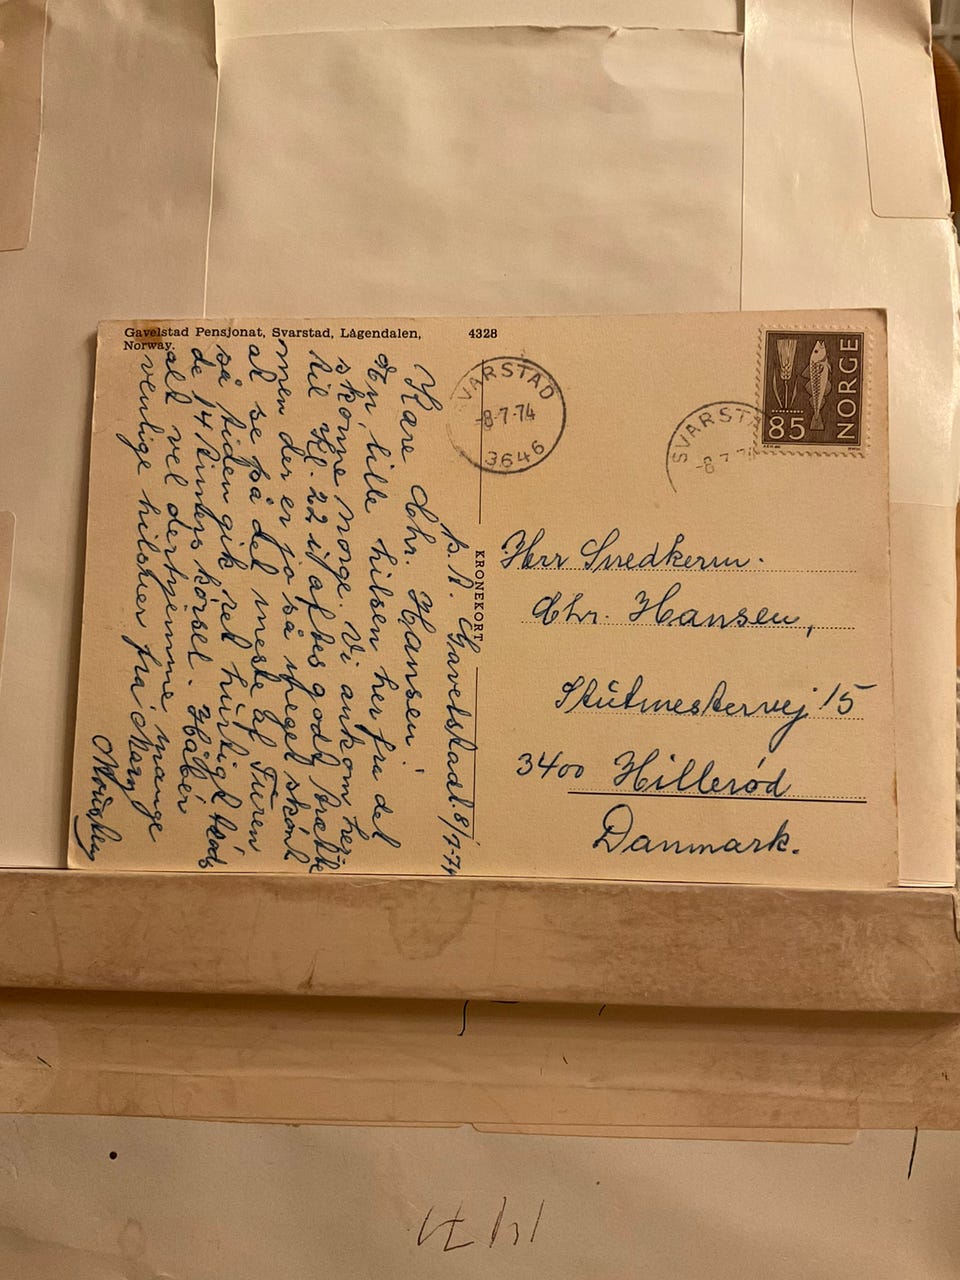 Gavelstad Pensjonat, Svarstad, Lågendalen,
Norway.
4328
SVARSTAD
-8-7-74
3646
SVARSTA
-8 7 7
NORGE
85
KRONEKORT
Herr Snedkerm.
Chr. Hansen,
Stutmestervej 15
3400 Hillerød
Danmark.
p. t. Gavelstad. 8/7-74
Kære Chr. Hansen!
En lille hilsen her fra det
skønne Norge. Vi ankom her
til Kl. 22 i aftes godt trætte
men der er jo så meget skønt
at se på det meste af Turen
så tiden gik ret hurtigt trods
de 14 timers kørsel. Håber
alt vel derhjemme mange
venlige hilsner fra Mary